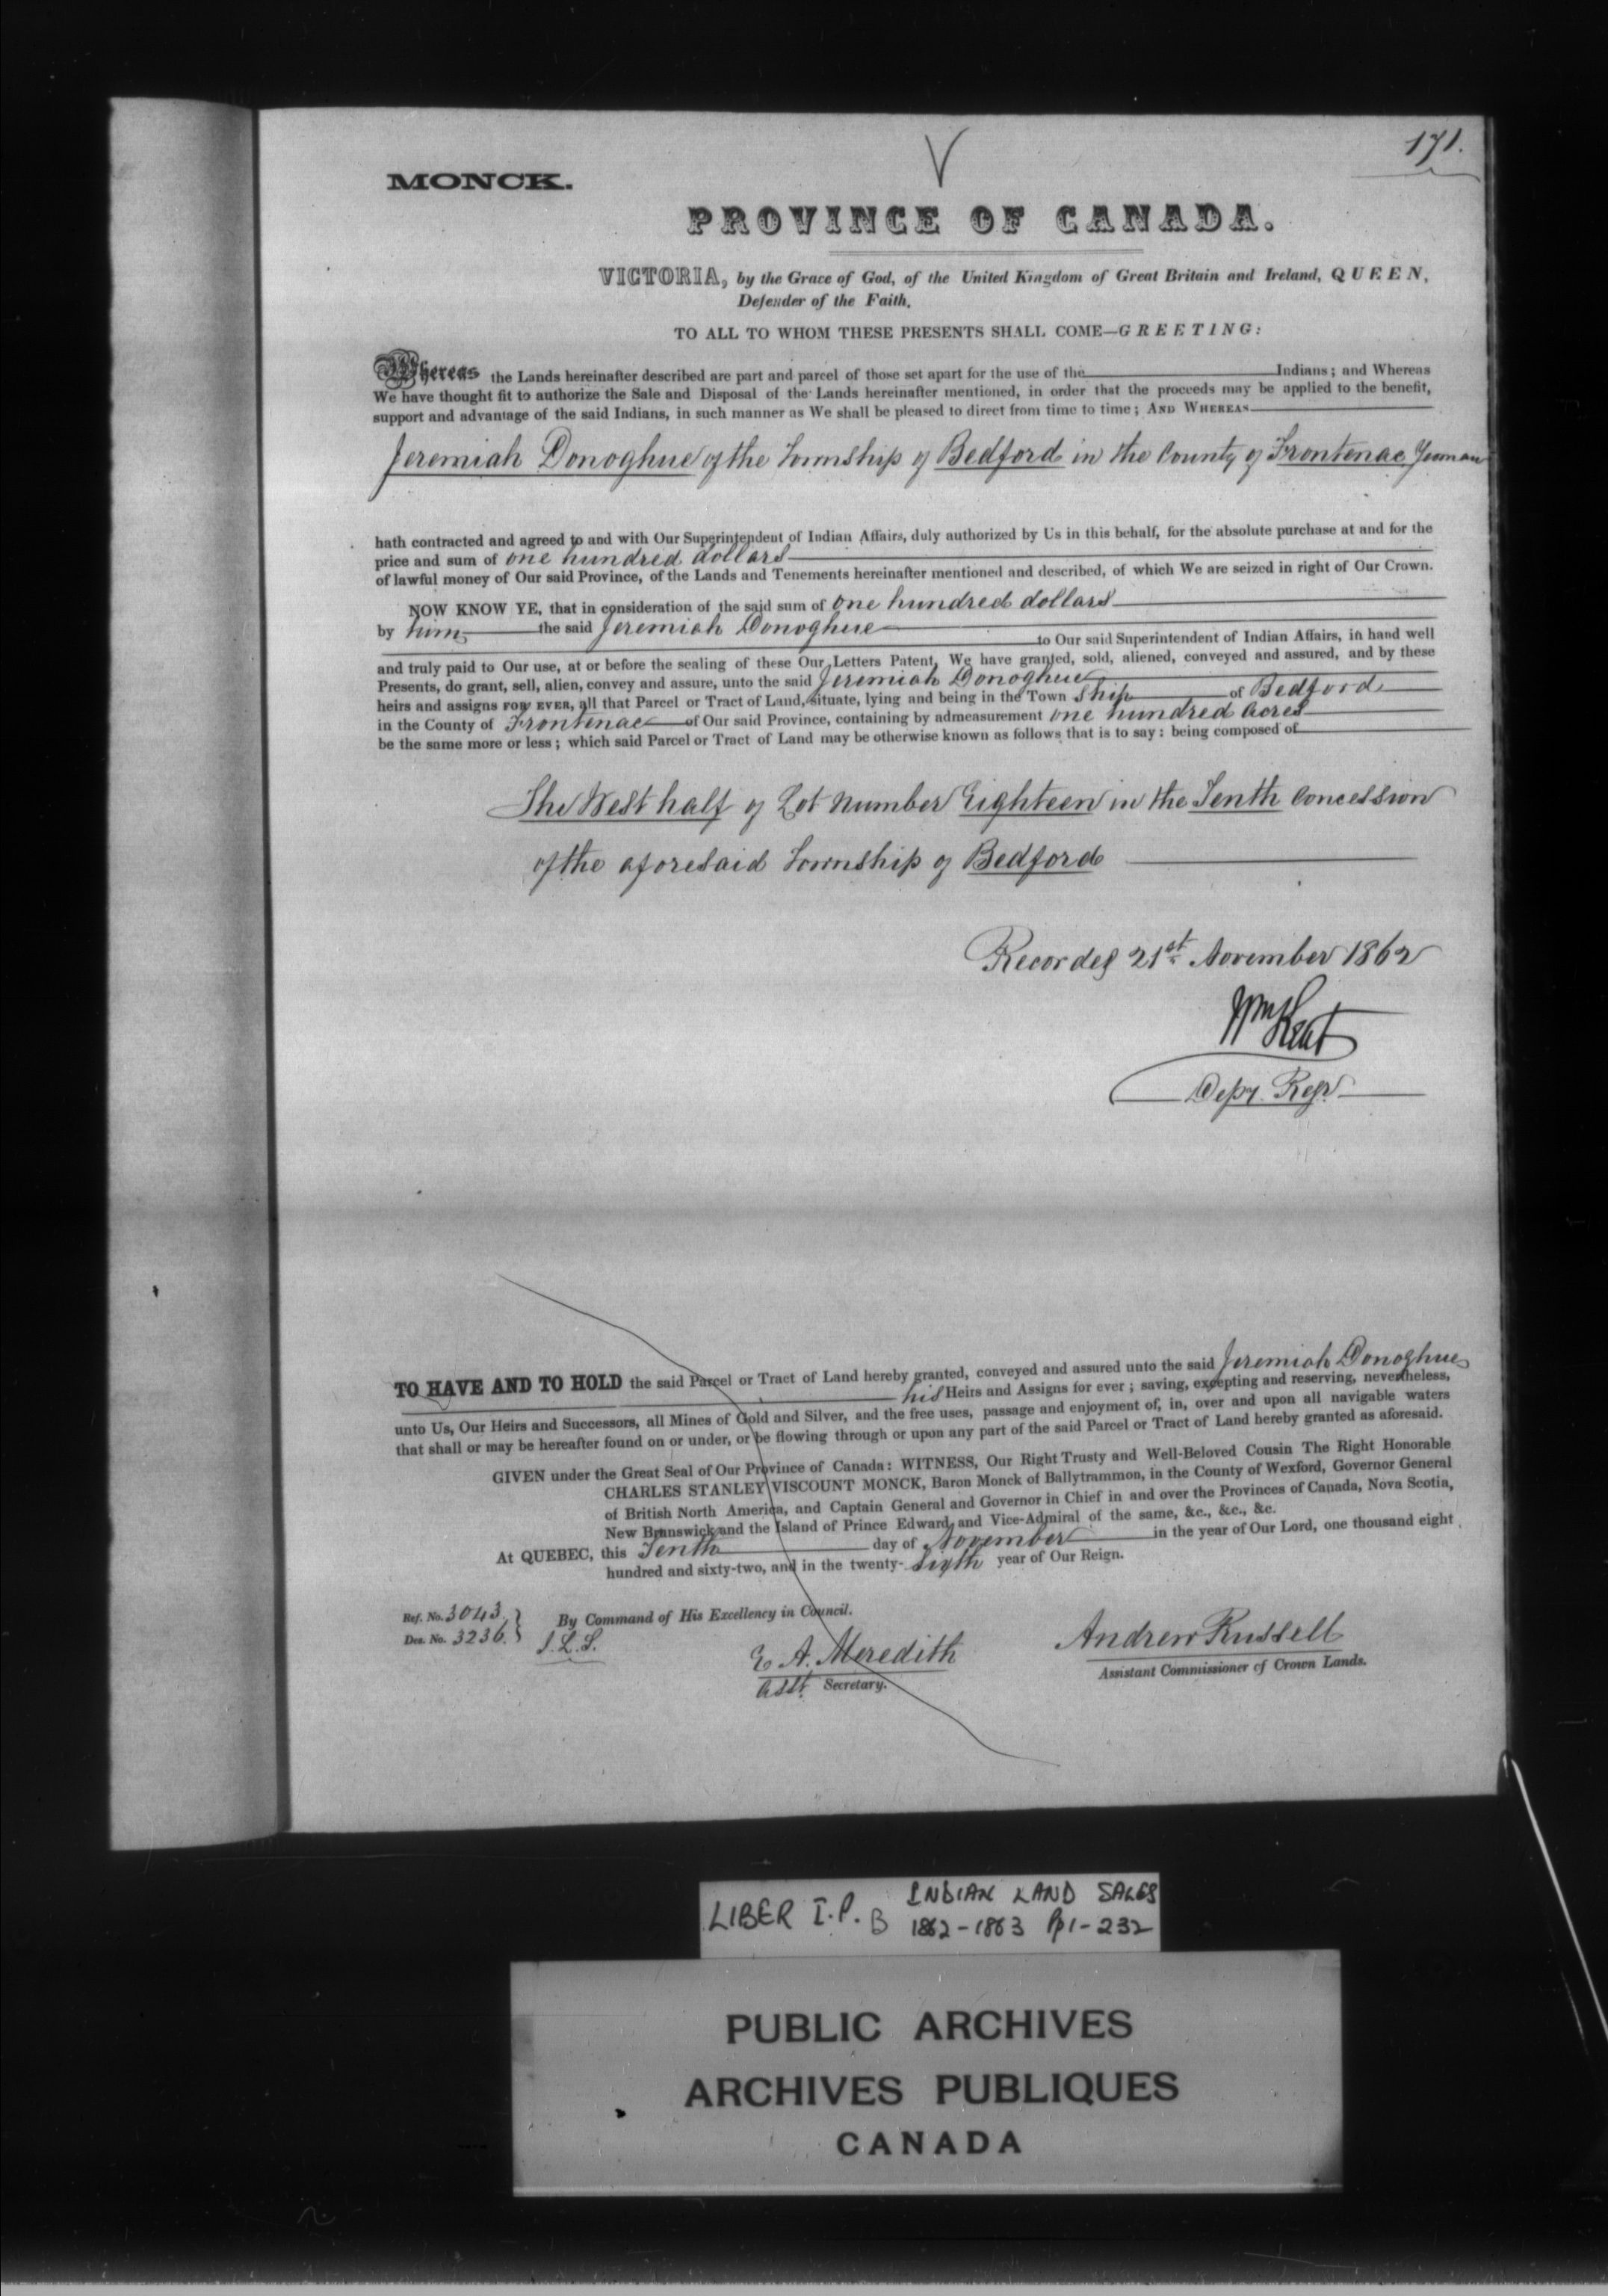 171.
V
MONCK.
PROVINCE OF CANADA.
VICTORIA, by the Grace of God, of the United Kingdom of Great Britain and Ireland, QUEEN,
Defender of the Faith.
TO ALL TO WHOM THESE PRESENTS SHALL COME—GREETING:
Whereas the Lands hereinafter described are part and parcel of those set apart for the use of the Indians; and Whereas
We have thought fit to authorize the Sale and Disposal of the Lands hereinafter mentioned, in order that the proceeds may be applied to the benefit,
support and advantage of the said Indians, in such manner as We shall be pleased to direct from time to time; AND WHEREAS
Jeremiah Donoghue of the Township of Bedford in the County of Frontenac Yeoman
hath contracted and agreed to and with Our Superintendent of Indian Affairs, duly authorized by Us in this behalf, for the absolute purchase at and for the
price and sum of one hundred dollars
of lawful money of Our said Province, of the Lands and Tenements hereinafter mentioned and described, of which We are seized in right of Our Crown.
NOW KNOW YE, that in consideration of the said sum of one hundred dollars
by him the said Jeremiah Donoghue
to Our said Superintendent of Indian Affairs, in hand well
and truly paid to Our use, at or before the sealing of these Our Letters Patent, We have granted, sold, aliened, conveyed and assured, and by these
Presents, do grant, sell, alien, convey and assure, unto the said Jeremiah Donoghue
heirs and assigns FOR EVER, all that Parcel or Tract of Land, situate, lying and being in the Town Ship of Bedford
in the County of Frontenac of Our said Province, containing by admeasurement one hundred acres
be the same more or less; which said Parcel or Tract of Land may be otherwise known as follows that is to say: being composed of
The West half of Lot number Eighteen in the Tenth Concession
of the aforesaid Township of Bedford
Recorded 21st November 1862
Wm Keat
Depy. Regr.
TO HAVE AND TO HOLD the said Parcel or Tract of Land hereby granted, conveyed and assured unto the said Jeremiah Donoghue
his Heirs and Assigns for ever; saving, excepting and reserving, nevertheless,
unto Us, Our Heirs and Successors, all Mines of Gold and Silver, and the free uses, passage and enjoyment of, in, over and upon all navigable waters
that shall or may be hereafter found on or under, or be flowing through or upon any part of the said Parcel or Tract of Land hereby granted as aforesaid.
GIVEN under the Great Seal of Our Province of Canada: WITNESS, Our Right Trusty and Well-Beloved Cousin The Right Honorable
CHARLES STANLEY VISCOUNT MONCK, Baron Monck of Ballytrammon, in the County of Wexford, Governor General
of British North America, and Captain General and Governor in Chief in and over the Provinces of Canada, Nova Scotia,
New Brunswick and the Island of Prince Edward, and Vice-Admiral of the same, &c., &c., &c.
At QUEBEC, this Tenth day of November in the year of Our Lord, one thousand eight
hundred and sixty-two, and in the twenty-sixth year of Our Reign.
Ref. No. 3043.
Des. No. 3236.
By Command of His Excellency in Council.
E. A. Meredith
Asst. Secretary.
Andrew Russell
Assistant Commissioner of Crown Lands.
LIBER I.P. B INDIAN LAND SALES
1862-1863 Pp 1-232
PUBLIC ARCHIVES
ARCHIVES PUBLIQUES
CANADA